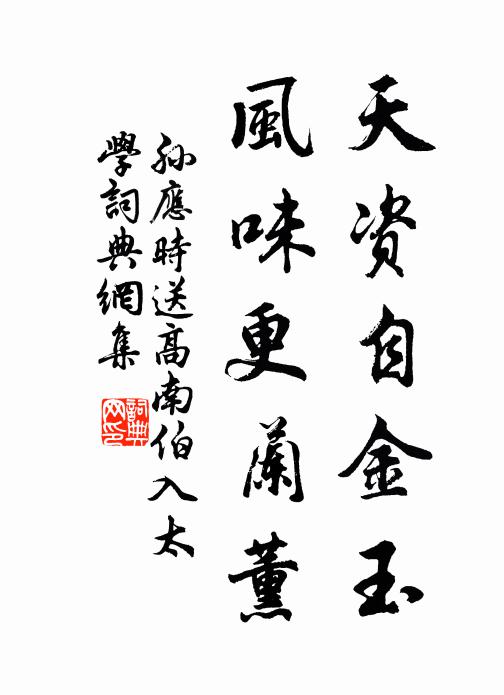 天資自金玉
風味更蘭薰
孫應時送高南伯入太
學詞典網集
詞典
网印